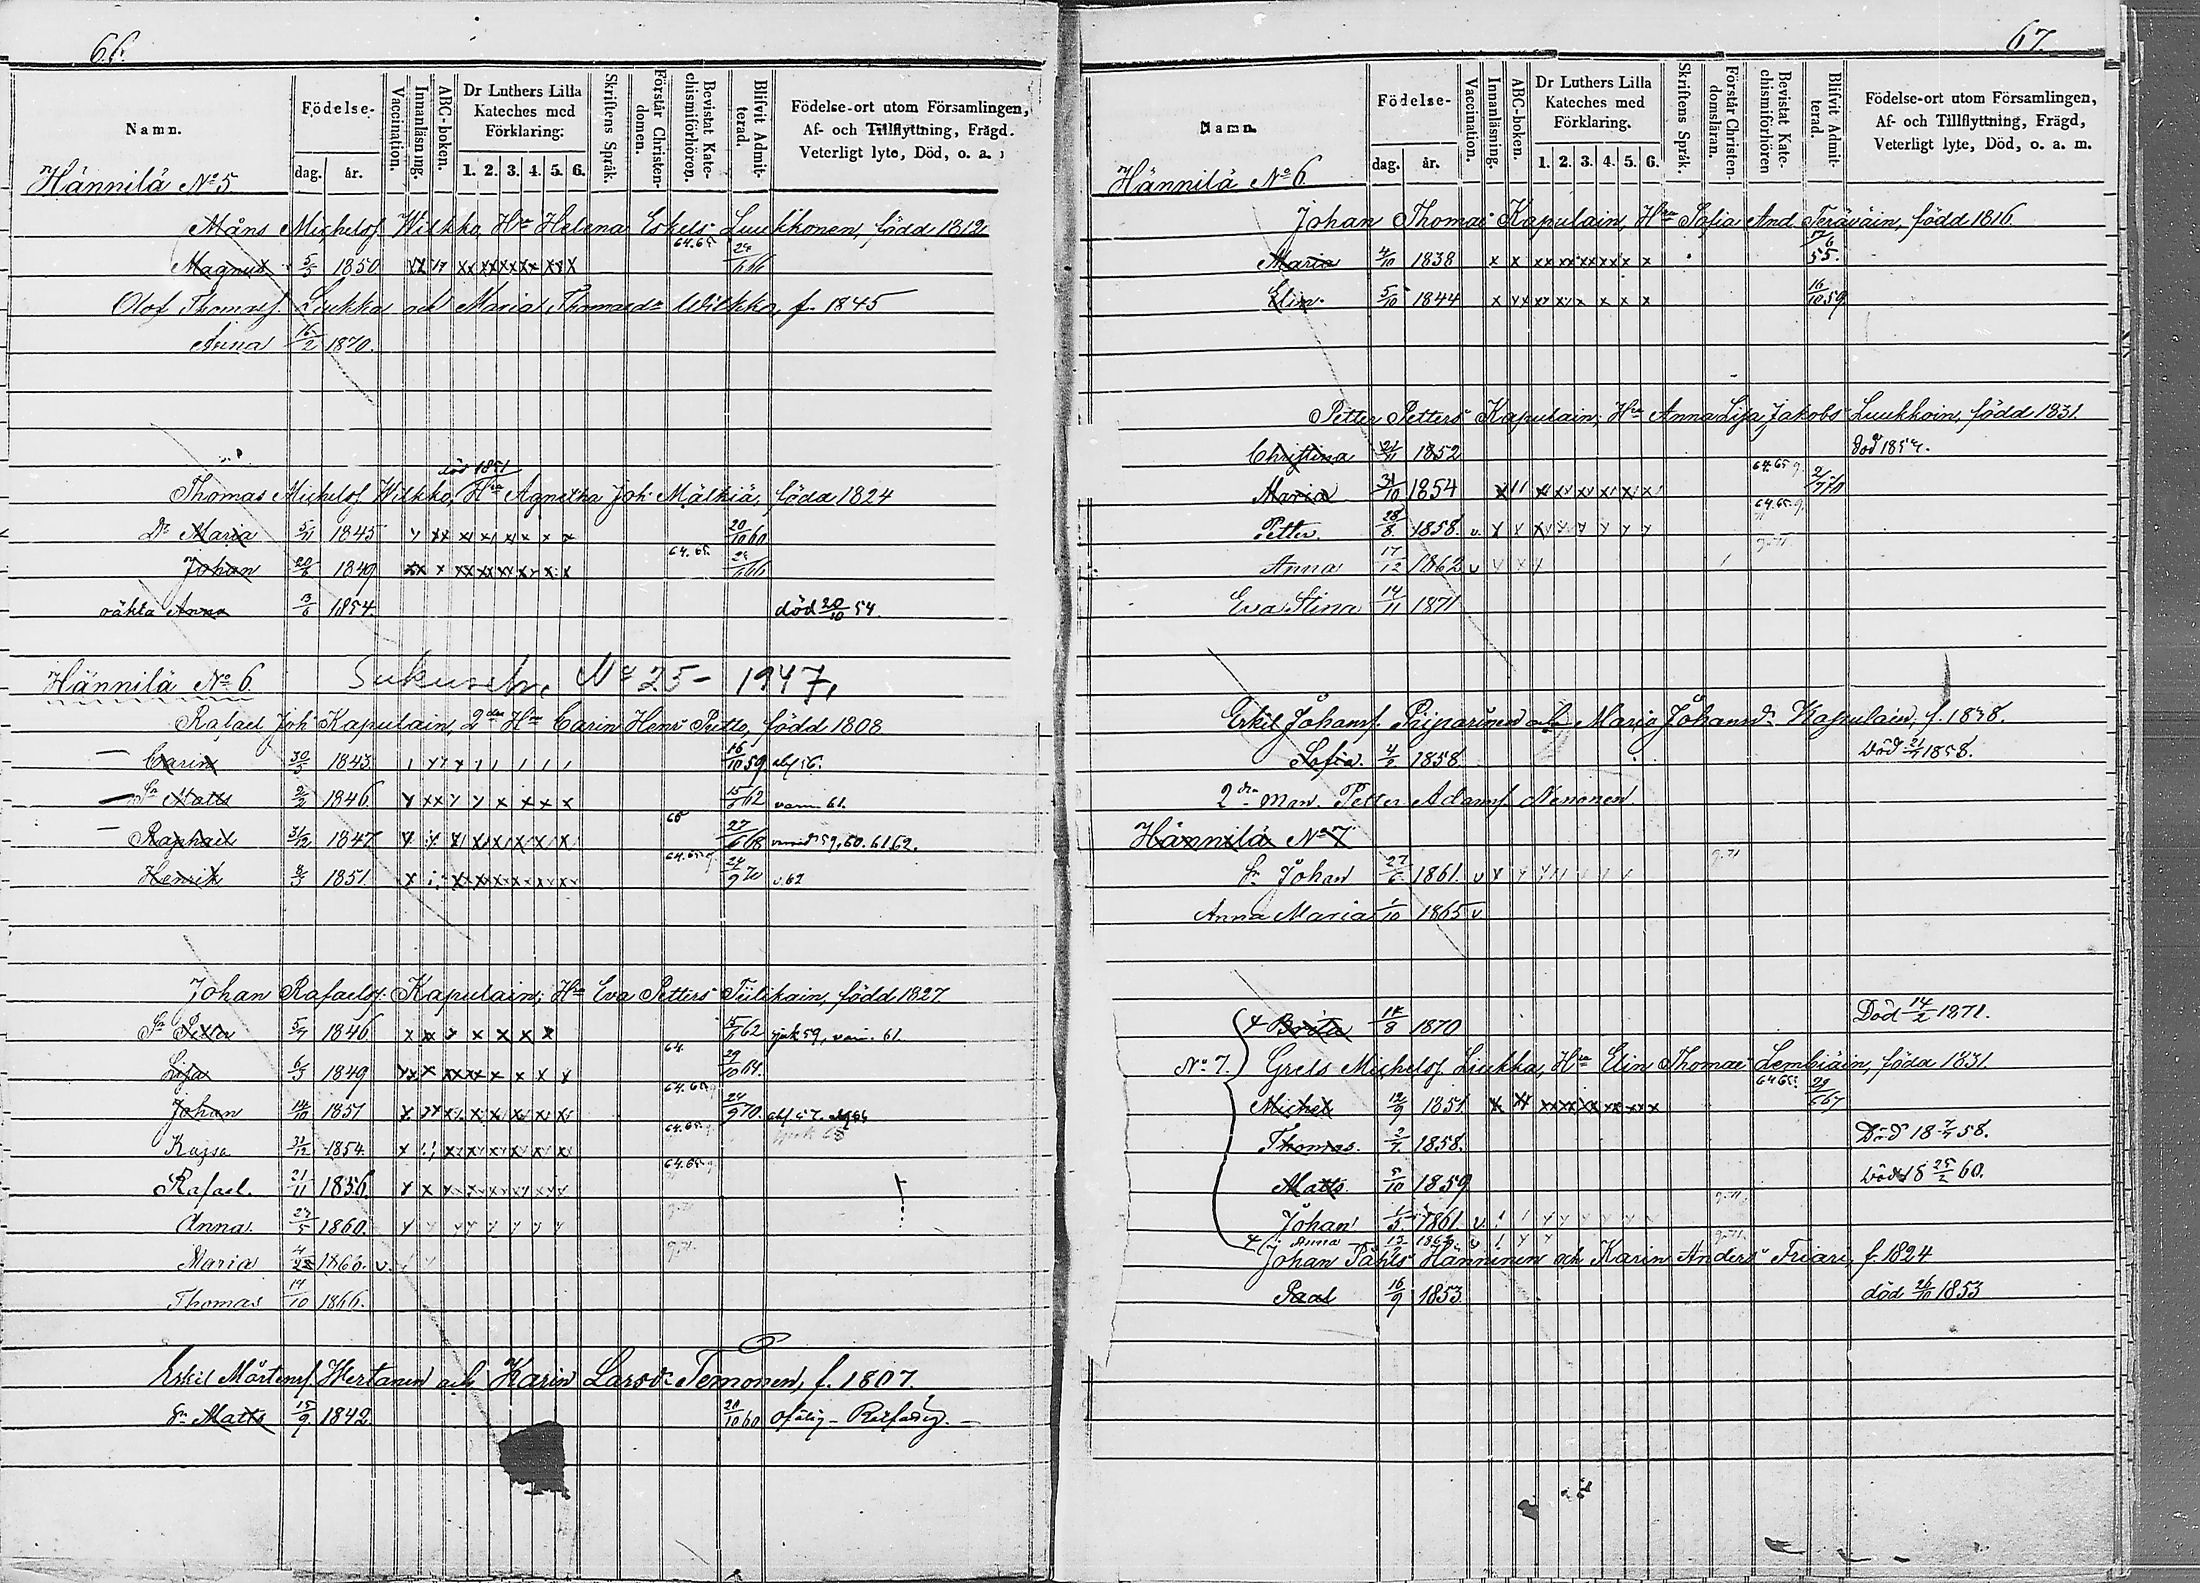 66.
Namn.
Födelse-
dag. år.
Vaccination.
Innanläsning.
ABC-boken.
Dr Luthers Lilla Kateches med Förklaring:
1. 2. 3. 4. 5. 6.
Skriftens Språk.
Förstår Christendomen.
Bevistat Katechismiförhören.
Blifvit Admitterad.
Födelse-ort utom Församlingen, Af- och Tillflyttning, Frägd. Veterligt lyte, Död, o. a.
Hännilä No 5
Måns Michelsf. Wilkko, Hru Helena Eskels Luukkonen, född 1812
Magnus 5/5 1850 64.65
Olof Thomasf. Liukka och Maria Thomasdr Wilkko, f. 1845
Anna 16/2 1870.
Thomas Michelsf. Wilkko, Hru Agnetha Joh. Mälkiä, född 1824
Dr Maria 5/11 1845 20/10 60
Johan 20/6 1849 64.65.
oäkta Anna 13/6 1854. död 20/10 54.
Hännilä No 6. No 25 - 1947.
Rafael Joh. Kapulain, 2den Hru Carin Henr. Pitto, född 1808
Carin 30/3 1843 16/10 59
Sr Matts 2/2 1846. 15/6 62 vann. 61.
Raphael 31/12 1847 27/6 68 59, 60. 61 62.
Henrik 1851. 64.65 24/9 70 v. 62
Johan Rafaelsf. Kapulain; Hru Eva Petters Tiilikain, född 1827.
Sr Petter 5/7 1846 15/6 62 59, vann. 61.
Lisa 6/3 1849 64. 29/10 64.
Johan 1851 64.65 24/9 70.
Kajsa 31/12 1854. 64.65.
Rafael. 21/11 1856. 64.65
Anna. 27/5 1860.
Maria 1863. v.
Thomas 14/10 1866.
Eskil Mårtensf. Hertanen och Karin Larsdr Temonen, f. 1807.
Sr Matts 15/9 1842 20/10 60
67.
Namn.
Födelse-
dag. år.
Vaccination.
Innanläsning.
ABC-boken.
Dr Luthers Lilla Kateches med Förklaring.
1. 2. 3. 4. 5. 6.
Skriftens Språk.
Förstår Christendomsläran.
Bevistat Katechismiförhören
Blifvit Admitterad.
Födelse-ort utom Församlingen, Af- och Tillflyttning, Frägd, Veterligt lyte, Död, o. a. m.
Hännilä No 6.
Johan Thomas Kapulain, Hru Sofia And. Teräväin, född 1816.
Maria 4/10 1838 17/6 55.
Elin. 5/10 1844 16/10 59
Petter Petters Kapulain; Hru Anna Lisa Jakobs Luukkoin, född 1831.
Christina 1852
Maria 31/10 1854 64.65
Petter. 28/8 1858. v. 64.65.
Anna 17/12 1862 v
Eva Stina 14/11 1871
Erkil Johansf. Piiparinen och Maria Johansdr Kapulain, f. 1838.
Sofia. 4/2 1858. Död 1858.
2dra man. Petter Adamsf. Nenonen
Hännilä No 7
Sr Johan 27/6 1861. v
Anna Maria 1/10 1865 v
Brita 1870 Död 14/2 1871.
No 7. Grels Michelsf. Liukka, Hru Elin Thomae Lembiäin, född 1831.
Michel 12/9 1851 64 65.
Thomas. 2/7 1858. Död 18 58.
Matts. 5/10 1859 Död 18 25/2 60.
Johan 1/5 1861. v.
Anna
Johan Påhls Hänninen och Karin Anders Friari, f. 1824
Paal 16/9 1853. död 26/10 1853